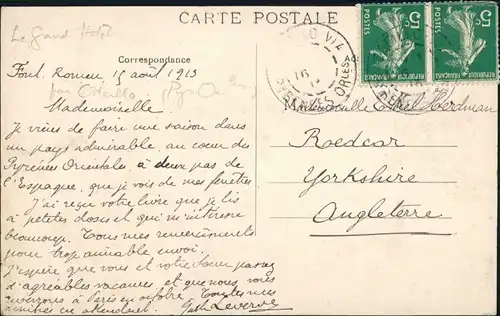 CARTE POSTALE
Le Grand Hôtel
Correspondance
Font. Romeu 15 août 1913
par Odeillo Pyr. Or.
Mademoiselle
Je viens de faire une saison dans
un pays admirable, au cœur des
Pyrénées Orientales, à deux pas de
l'Espagne, que je vois de mes fenêtres
J'ai reçu votre livre que je lis
à petites doses et qui m'intéresse
beaucoup. Tous mes remerciements
pour trop aimable envoi.
J'espère que vous et votre sœur passez
d'agréables vacances, et que nous vous
reverrons à Paris en octobre. Toutes mes
amitiés en attendant.
5c
POSTES
REPUBLIQUE FRANÇAISE
5c
POSTES
REPUBLIQUE FRANÇAISE
Mademoiselle Ethel Herdman
Roedcar
Yorkshire
Angleterre